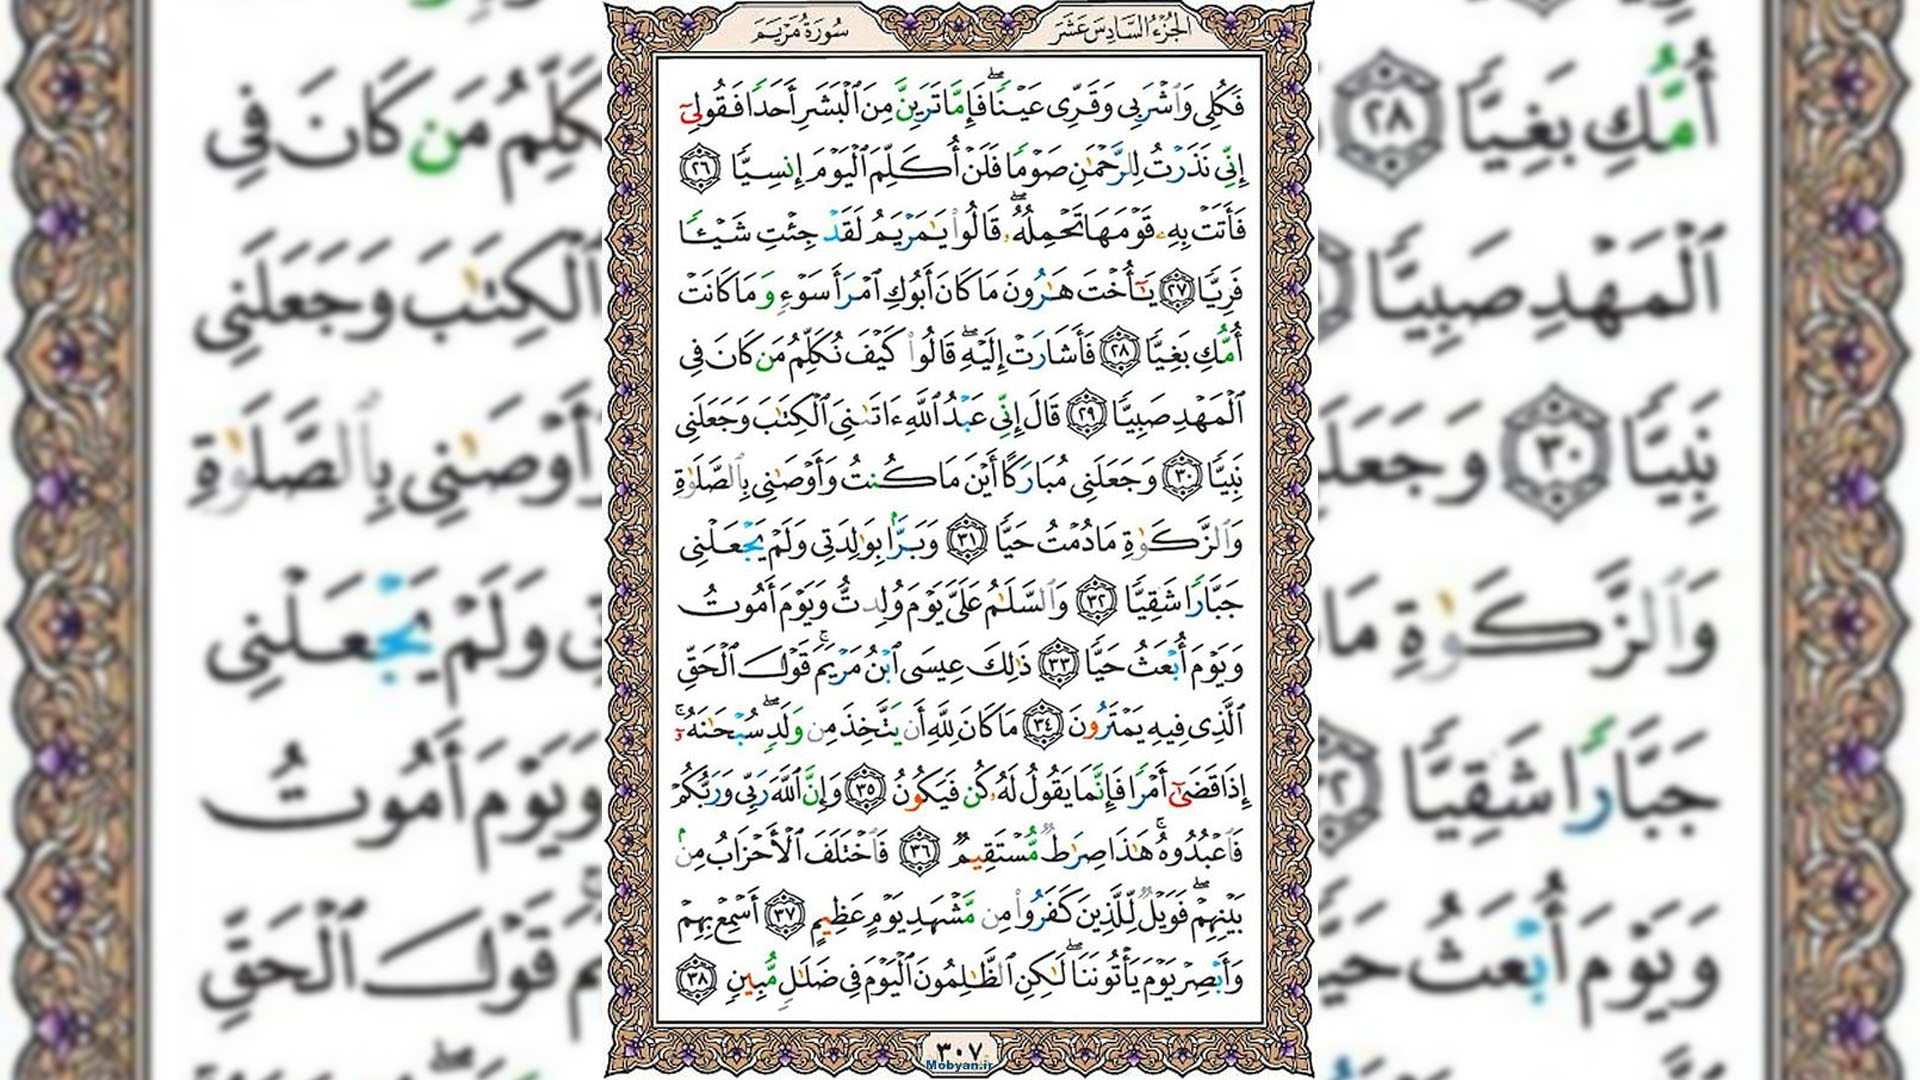 الجزء السادس عشر
سورة مريم
فَكُلِي وَٱشْرَبِي وَقَرِّي عَيْنًاۖ فَإِمَّا تَرَيِنَّ مِنَ ٱلْبَشَرِ أَحَدًا فَقُولِيٓ
إِنِّي نَذَرْتُ لِلرَّحْمَٰنِ صَوْمًا فَلَنْ أُكَلِّمَ ٱلْيَوْمَ إِنسِيًّا ٢٦
فَأَتَتْ بِهِۦ قَوْمَهَا تَحْمِلُهُۥۖ قَالُوا۟ يَٰمَرْيَمُ لَقَدْ جِئْتِ شَيْـًٔا
فَرِيًّا ٢٧ يَٰٓأُخْتَ هَٰرُونَ مَا كَانَ أَبُوكِ ٱمْرَأَ سَوْءٍ وَمَا كَانَتْ
أُمُّكِ بَغِيًّا ٢٨ فَأَشَارَتْ إِلَيْهِۖ قَالُوا۟ كَيْفَ نُكَلِّمُ مَن كَانَ فِي
ٱلْمَهْدِ صَبِيًّا ٢٩ قَالَ إِنِّي عَبْدُ ٱللَّهِ ءَاتَىٰنِيَ ٱلْكِتَٰبَ وَجَعَلَنِي
نَبِيًّا ٣٠ وَجَعَلَنِي مُبَارَكًا أَيْنَ مَا كُنتُ وَأَوْصَٰنِي بِٱلصَّلَوٰةِ
وَٱلزَّكَوٰةِ مَا دُمْتُ حَيًّا ٣١ وَبَرًّۢا بِوَٰلِدَتِي وَلَمْ يَجْعَلْنِي
جَبَّارًا شَقِيًّا ٣٢ وَٱلسَّلَٰمُ عَلَيَّ يَوْمَ وُلِدتُّ وَيَوْمَ أَمُوتُ
وَيَوْمَ أُبْعَثُ حَيًّا ٣٣ ذَٰلِكَ عِيسَى ٱبْنُ مَرْيَمَۚ قَوْلَ ٱلْحَقِّ
ٱلَّذِي فِيهِ يَمْتَرُونَ ٣٤ مَا كَانَ لِلَّهِ أَن يَتَّخِذَ مِن وَلَدٍۖ سُبْحَٰنَهُۥٓۚ
إِذَا قَضَىٰٓ أَمْرًا فَإِنَّمَا يَقُولُ لَهُۥ كُن فَيَكُونُ ٣٥ وَإِنَّ ٱللَّهَ رَبِّي وَرَبُّكُمْ
فَٱعْبُدُوهُۚ هَٰذَا صِرَٰطٌ مُّسْتَقِيمٌ ٣٦ فَٱخْتَلَفَ ٱلْأَحْزَابُ مِنۢ
بَيْنِهِمْۖ فَوَيْلٌ لِّلَّذِينَ كَفَرُوا۟ مِن مَّشْهَدِ يَوْمٍ عَظِيمٍ ٣٧ أَسْمِعْ بِهِمْ
وَأَبْصِرْ يَوْمَ يَأْتُونَنَاۖ لَٰكِنِ ٱلظَّٰلِمُونَ ٱلْيَوْمَ فِي ضَلَٰلٍ مُّبِينٍ ٣٨
٣٠٧
Mobyan.ir